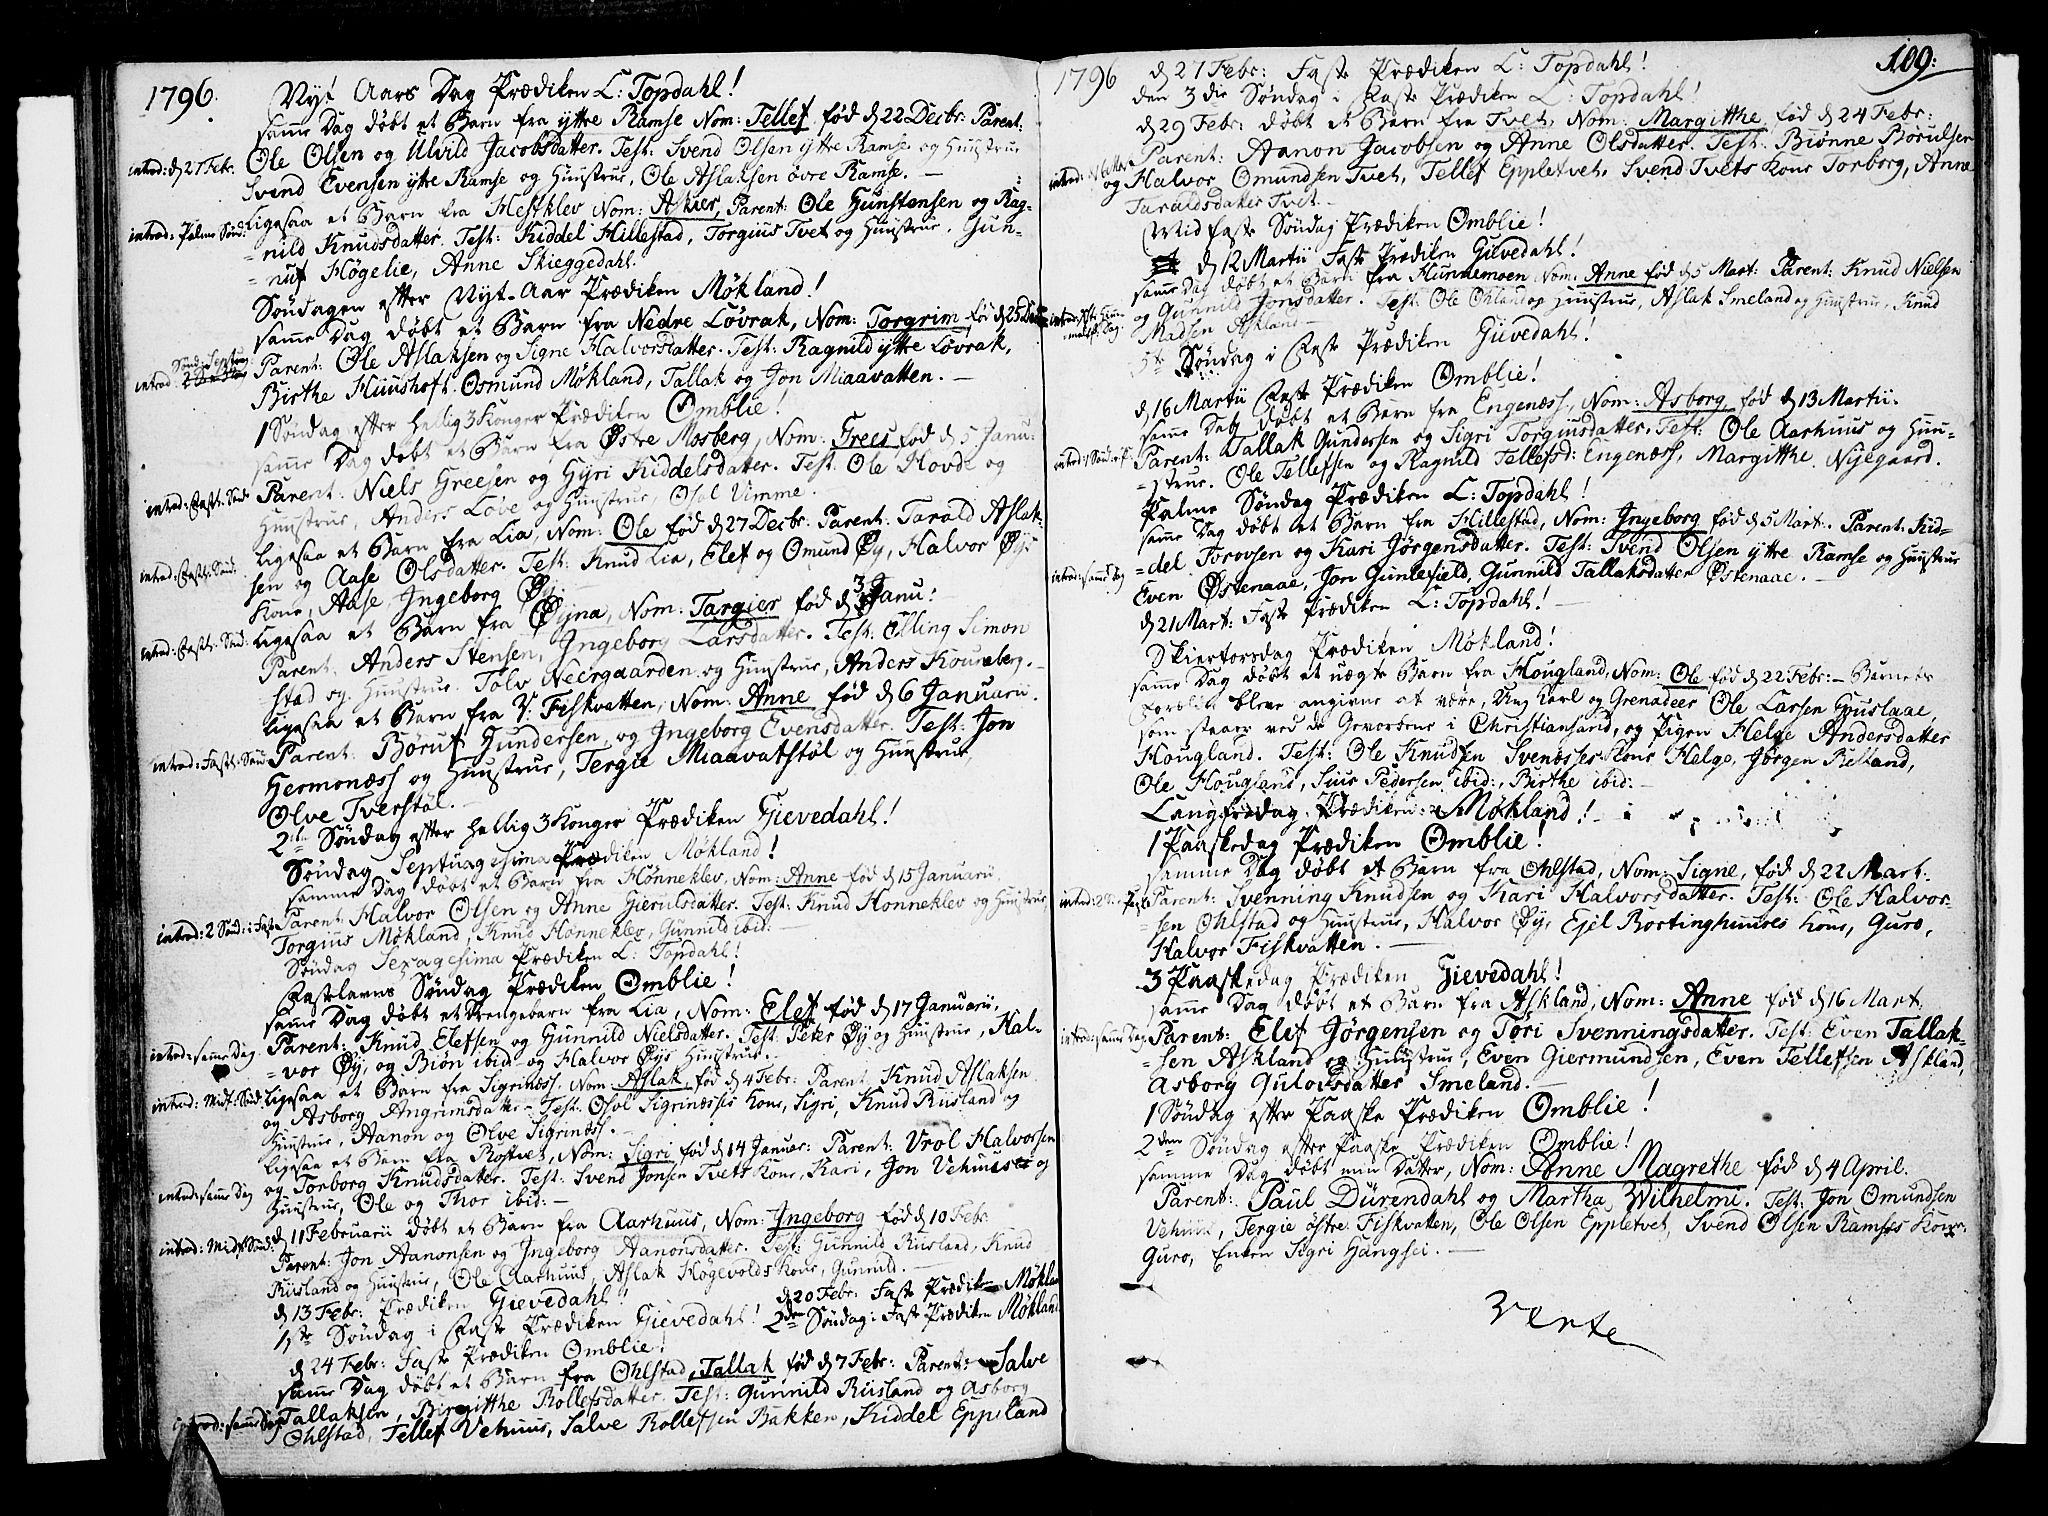 1796.
Nyt Aars Dag Prædiken L: Topdahl!
samme Dag døbt et Barn fra ytre Ramse Nom: Tellef fød d 22 Decbr: Parent:
introd: d 27 Febr. Ole Olsen og Ulvild Jacobsdatter. Test: Svend Olsen ytre Ramse og Huustrue
Svend Evensen ytre Ramse og Huustrue, Ole Aslaksen øvre Ramse. —
introd: Palme Sønd: ligesaa et Barn fra Hestklev Nom: Askier, Parent: Ole Gunstensen og Rag-
=nild Knudsdatter. Test: Kiddel Hillestad, Torgiuus Tvet og Huustrue, Gun-
=nuf Høgelie, Anne Skieggedahl.
Søndagen efter Nyt-Aar Prædiken Møkland!
samme Dag døbt et Barn fra Nedre Løvrak, Nom: Torgrim fød d 25 Decbr:
introd: Sønd: Septuag: Parent: Ole Aslaksen og Signe Halvorsdatter. Test: Ragnild ytre Løvrak,
Birthe Huushoft. Osmund Møkland, Tallak og Jon Miaavatten. —
1 Søndag efter hellig 3 Konger Prædiken Omblie!
samme Dag døbt et Barn fra Østre Mosberg, Nom: Grees fød d 5 Janu:
introd: Fastl: Sønd: Parent: Niels Greesen og Gyri Kiddelsdatter. Test: Ole Hovde og
Huustrue, Anders Løve og Huustrue, Osol Vimme.
ligesaa et Barn fra Lia, Nom: Ole fød d 27 Decbr: Parent: Tarald Aslak-
introd: Fastl: Sønd: sen og Aase Olsdatter. Test: Knud Lia, Elef og Omund Øy, Halvor Øys
Kone, Aase, Ingeborg Øy.
introd: Fastl: Sønd: ligesaa et Barn fra Øyna, Nom: Targier fød d 3 Janu:
Parent: Anders Stensen, Ingeborg Larsdatter. Test: Elling Simon
=stad og Huustrue. Tolv Neergaarden og Huustrue, Anders Kouneberg.
ligesaa et Barn fra V: Fiskvatten, Nom: Anne fød d 6 Januarii.
introd: Fastl: Sønd: Parent: Børuf Gundersen, og Ingeborg Evensdatter. Test: Jon
Hermonæss og Huustrue, Tergie Miaavatstøl og Huustrue,
Olve Tverstøl.
2de Søndag efter hellig 3 Konger Prædiken Gievedahl!
Søndag Septuagesima Prædiken Møkland!
samme Dag døbt et Barn fra Hønneklev, Nom: Anne fød d 15 Januarii.
introd: 2 Sønd: i Faste Parent: Halvor Olsen og Anne Gierulsdatter. Test: Knud Hønneklev og Huustrue,
Torgiuus Møkland, Knud Hønneklev, Gunnild ibid: —
Søndag Sexagesima Prædiken L: Topdahl!
Fastelavns Søndag Prædiken Omblie!
samme Dag døbt et Drengebarn fra Lia, Nom: Elef fød d 17 Januarii.
introd: samme Dag. Parent: Knud Elefsen og Gunnild Nielsdatter. Test: Peter Øy og Huustrue, Hal-
=vor Øy, og Biøn ibid: og Halvor Øys Huustrue.
introd: Midf: Sønd: ligesaa et Barn fra Sigrinæss, Nom: Aslak fød d 4 Febr: Parent: Knud Aslaksen
og Asborg Angrimsdatter. Test: Osol Sigrinæsses Kone, Sigri, Knud Riisland og
Huustrue, Aanon og Olve Sigrinæss.
ligesaa et Barn fra Rostvet, Nom: Sigri fød d 14 Januar: Parent: Vrol Halvorsen
introd: samme Dag og Torborg Knudsdatter. Test: Svend Jonsen Tvets Kone, Kari, Jon Vehuus og
Huustrue, Ole og Thor ibid: —
d 11 Februarii døbt et Barn fra Aarhuus, Nom: Ingeborg fød d 10 Febr:
introd: Midf: Sønd: Parent: Jon Aanonsen og Ingeborg Aanonsdatter. Test: Gunnild Riisland, Knud
Riisland og Huustrue, Ole Aarhuus, Aslak Høgevolds Kone, Gunnild.
d 13 Febr: Prædiken Gievedahl! d 20 Febr: Faste Prædiken Møkland
1ste Søndag i Faste Prædiken Gievedahl! 2den Søndag i Faste Prædiken Møkland
d 24 Febr: Faste Prædiken Omblie!
samme Dag døbt et Barn fra Ohlstad, Tallak fød d 7 Febr: Parent: Salve
introd: samme Dag Tallaksen, Birgitthe Rollefsdatter. Test: Gunnild Riisland og Asborg
Ohlstad, Tellef Vehuus, Salve Rollefsen Bakken, Kiddel Eppeland
1796 109:
d 27 Febr: Faste Prædiken L: Topdahl!
den 3die Søndag i Faste Prædiken L: Topdahl!
d 29 Febr: døbt et Barn fra Tvet, Nom: Margitthe fød d 24 Febr:
Parent: Aanon Jacobsen og Anne Olsdatter. Test: Biønne Børulsen
og Halvor Omundsen Tvet, Tellef Eppletvet, Svend Tvets Kone Torborg, Anne
Taraldsdatter Tvet. —
Mid faste Søndag Prædiken Omblie!
d 12 Martii Faste Prædiken Gievedahl!
samme Dag døbt et Barn fra Hunnemoen Nom: Anne fød d 5 Mart: Parent: Knud Nielsen
og Gunnild Jonsdatter. Test: Ole Ohland og Huustrue, Aslak Smeland og Huustrue, Knud
Madsen Askland —
5te Søndag i Faste Prædiken Gievedahl!
d 16 Martii Faste Prædiken Omblie!
samme Dag døbt et Barn fra Engenæss, Nom: Asborg fød d 13 Martii.
Parent: Tallak Gundersen og Sigri Torgiusdatter. Test: Ole Aarhuus og Huu-
=strue. Ole Tellefsen og Ragnild Tellefsd: Engenæss, Margitthe Nyegaard.
Palme Søndag Prædiken L: Topdahl!
samme Dag døbt et Barn fra Hillestad, Nom: Ingeborg fød d 5 Mart: Parent: Kid-
=del Torovsen og Kari Jørgensdatter. Test: Svend Olsen ytre Ramse og Huustrue
introd: samme Dag Even Østenaae, Jon Gunlefield, Gunnild Tallaksdatter Østenaae. —
d 21 Mart: Faste Prædiken L: Topdahl! —
Skiertorsdag Prædiken Møkland!
samme Dag døbt et uægte Barn fra Hougland, Nom: Ole fød d 22 Febr: — Barnets
Forældre bleve angivne at være, Ung Karl og Grenadeer Ole Larsen Huuslaae,
som staaer ved de Gevorbne i Christiansand, og Pigen Helge Andersdatter
Hougland. Test: Ole Knudsen Svenæsses Kone Helge, Jørgen Retland,
Ole Hougland, Siur Pedersen ibid:, Birthe ibid: —
Langfredag Prædiken: Møkland!
1 Paaskedag Prædiken Omblie!
samme Dag døbt et Barn fra Ohlstad, Nom: Signe, fød d 22 Mart:
Parent: Svenning Knudsen og Kari Halvorsdatter. Test: Ole Halvor-
=sen Ohlstad og Huustrue, Halvor Øy, Ejel Rortinghuuses Kone, Guro,
Halvor Fiskvatten. —
3 Paaskedag Prædiken Gievedahl!
samme Dag døbt et Barn fra Askland, Nom: Anne fød d 16 Mart:
introd: samme Dag Parent: Elef Jørgensen og Tøri Svenningsdatter. Test: Even Tallak-
=sen Askland og Huustrue, Even Giermundsen, Even Tellefsen Askland,
Asborg Gulovsdatter Smeland. —
1 Søndag efter Paaske Prædiken Omblie!
2den Søndag efter Paaske Prædiken Omblie!
samme Dag døbt min Datter, Nom: Anne Magrethe fød d 4 April.
Parent: Paul Dürendahl og Martha Wilhelmi. Test: Jon Omundsen
Vehuus, Tergie østre Fiskvatten, Ole Olsen Eppletvet, Svend Olsen Ramses Kone,
Guro, Enken Sigri Hangsei. —
Verte